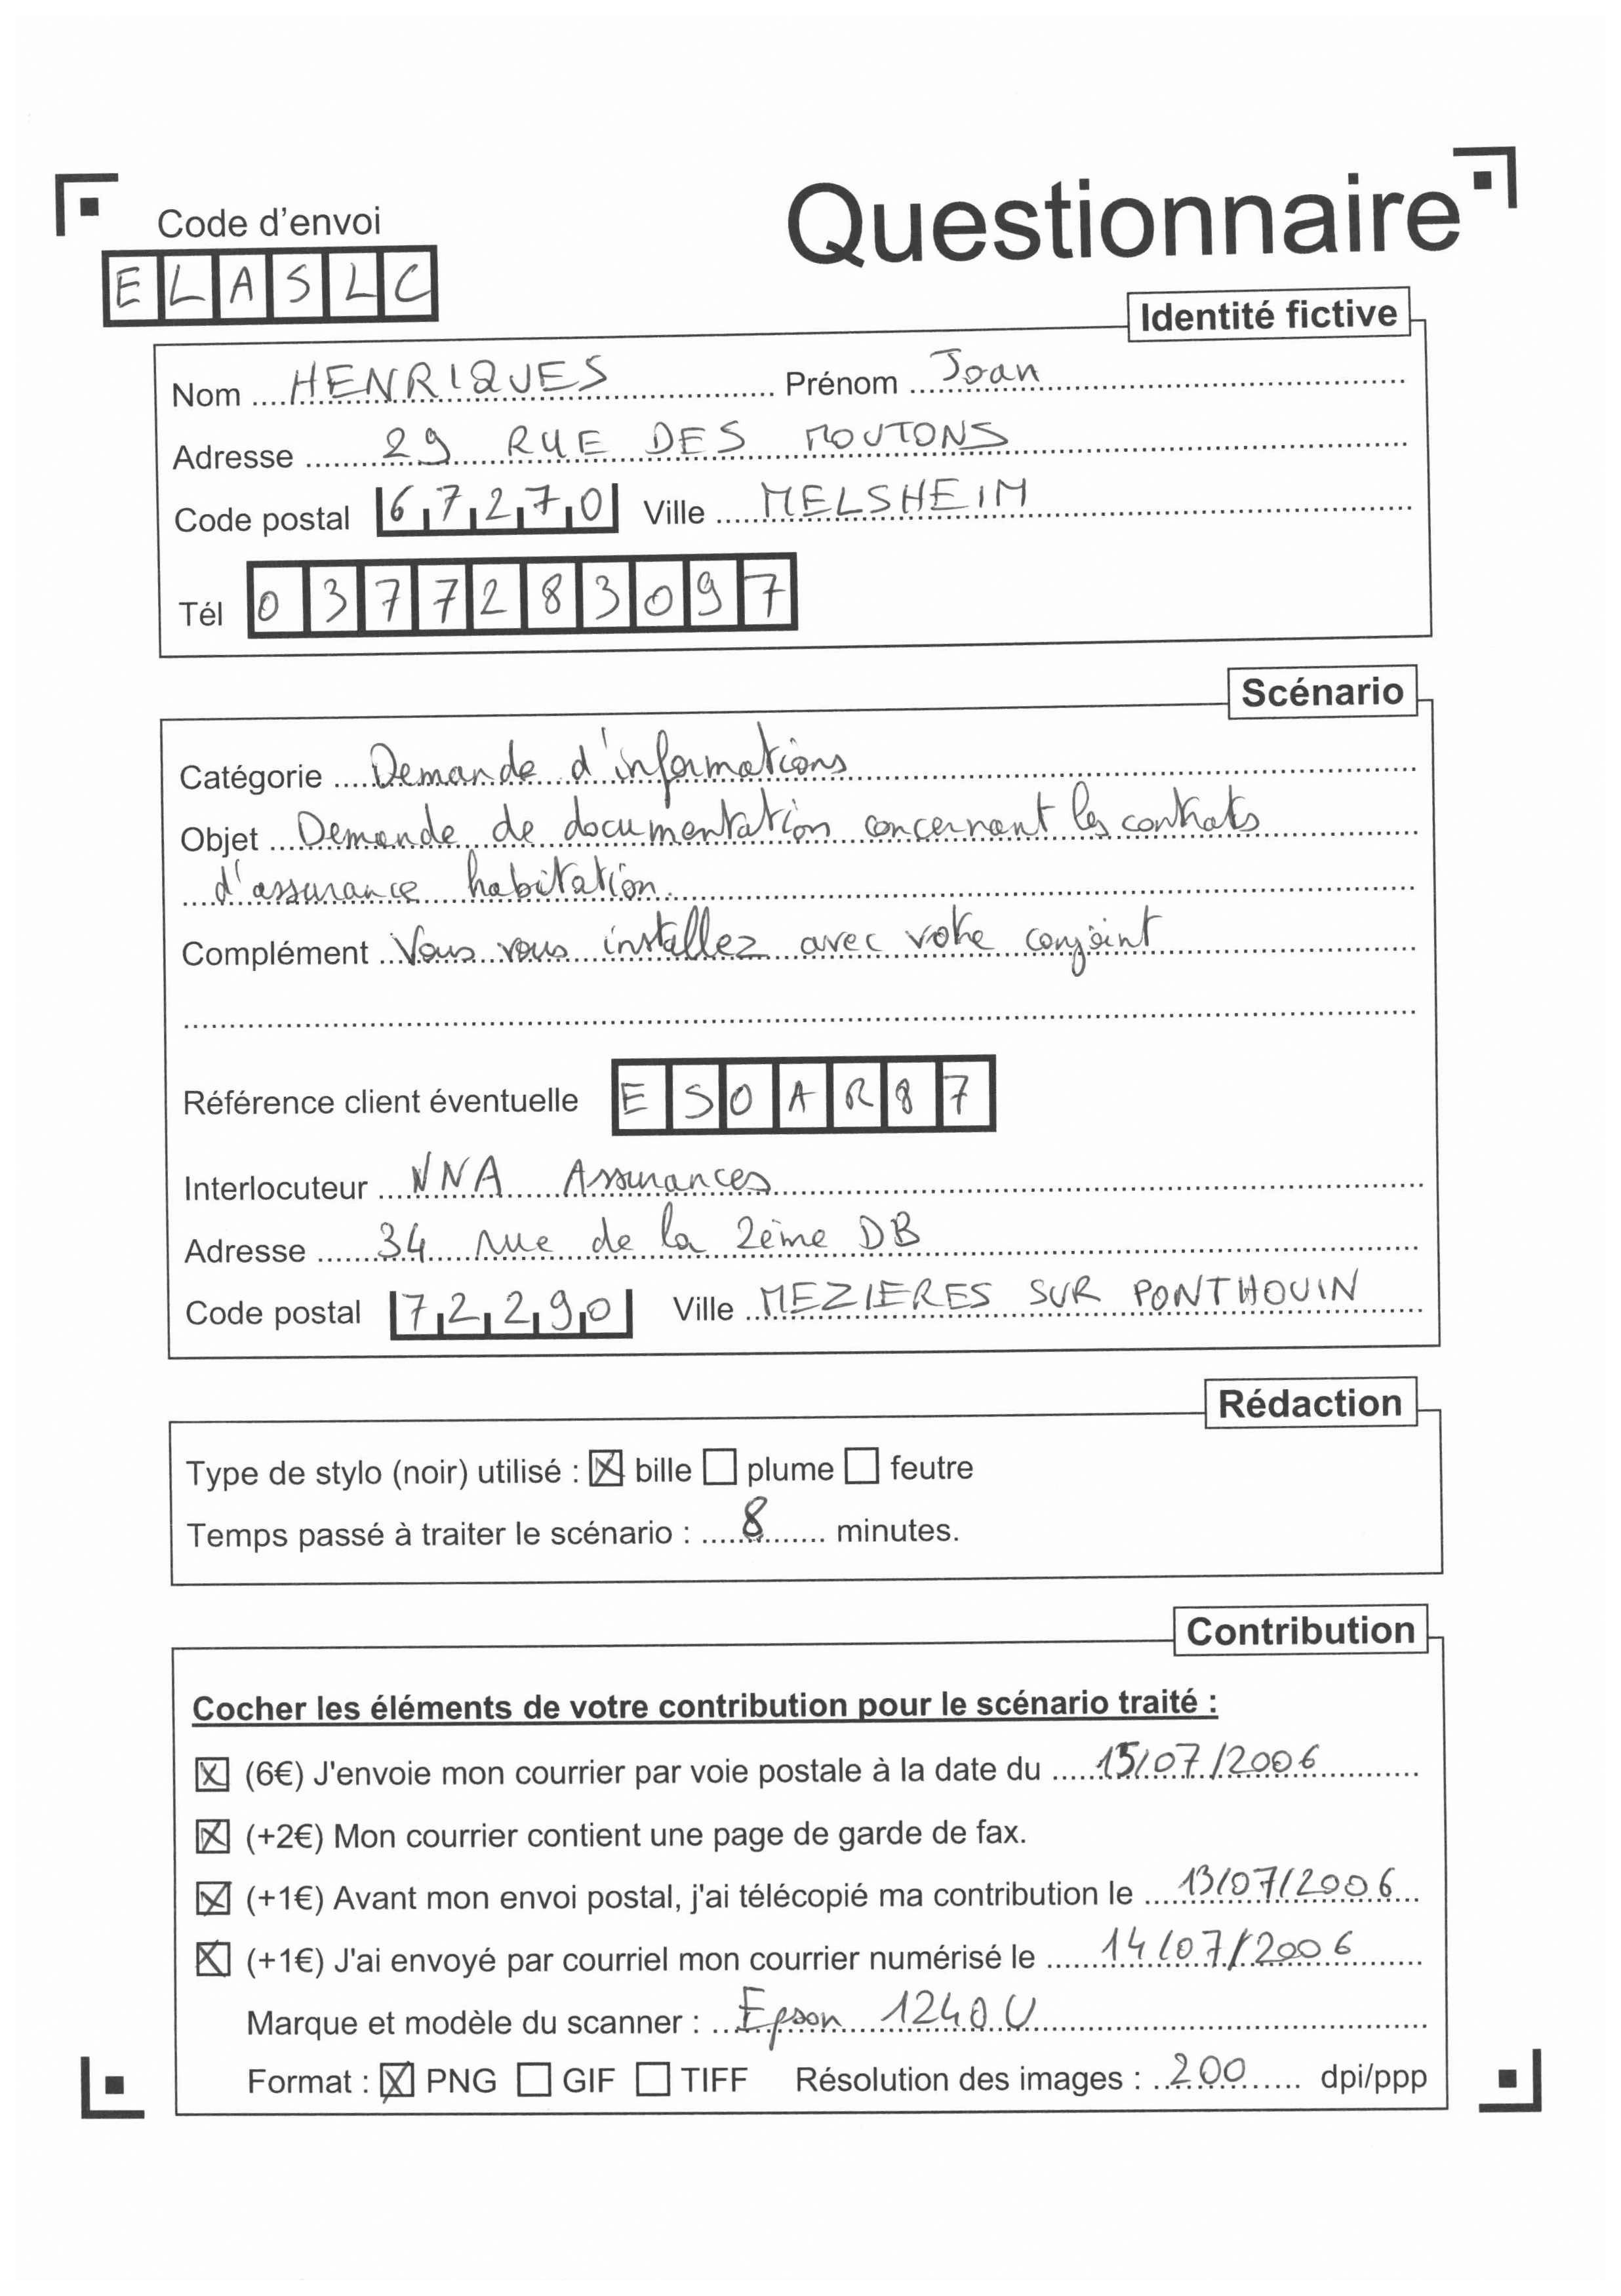 Questionnaire
Code d'envoi
ELASLC
Identité fictive
Nom HENRIQUES Prénom Joan
Adresse 29 RUE DES MOUTONS
Code postal 67270 Ville MELSHEIM
Tél 0377283097
Scénario
Catégorie Demande d'informations
Objet Demande de documentation concernant les contrats
d'assurance habitation.
Complément Vous vous installez avec votre conjoint
Référence client éventuelle ESOAR87
Interlocuteur VNA Assurances
Adresse 34 rue de la 2ème DB
Code postal 72290 Ville MEZIERES SUR PONTHOUIN
Rédaction
Type de stylo (noir) utilisé : ☒ bille ☐ plume ☐ feutre
Temps passé à traiter le scénario : 8 minutes.
Contribution
Cocher les éléments de votre contribution pour le scénario traité :
☒ (6€) J'envoie mon courrier par voie postale à la date du 15/07/2006
☒ (+2€) Mon courrier contient une page de garde de fax.
☒ (+1€) Avant mon envoi postal, j'ai télécopié ma contribution le 13/07/2006
☒ (+1€) J'ai envoyé par courriel mon courrier numérisé le 14/07/2006
Marque et modèle du scanner : Epson 1240U
Format : ☒ PNG ☐ GIF ☐ TIFF Résolution des images : 200 dpi/ppp